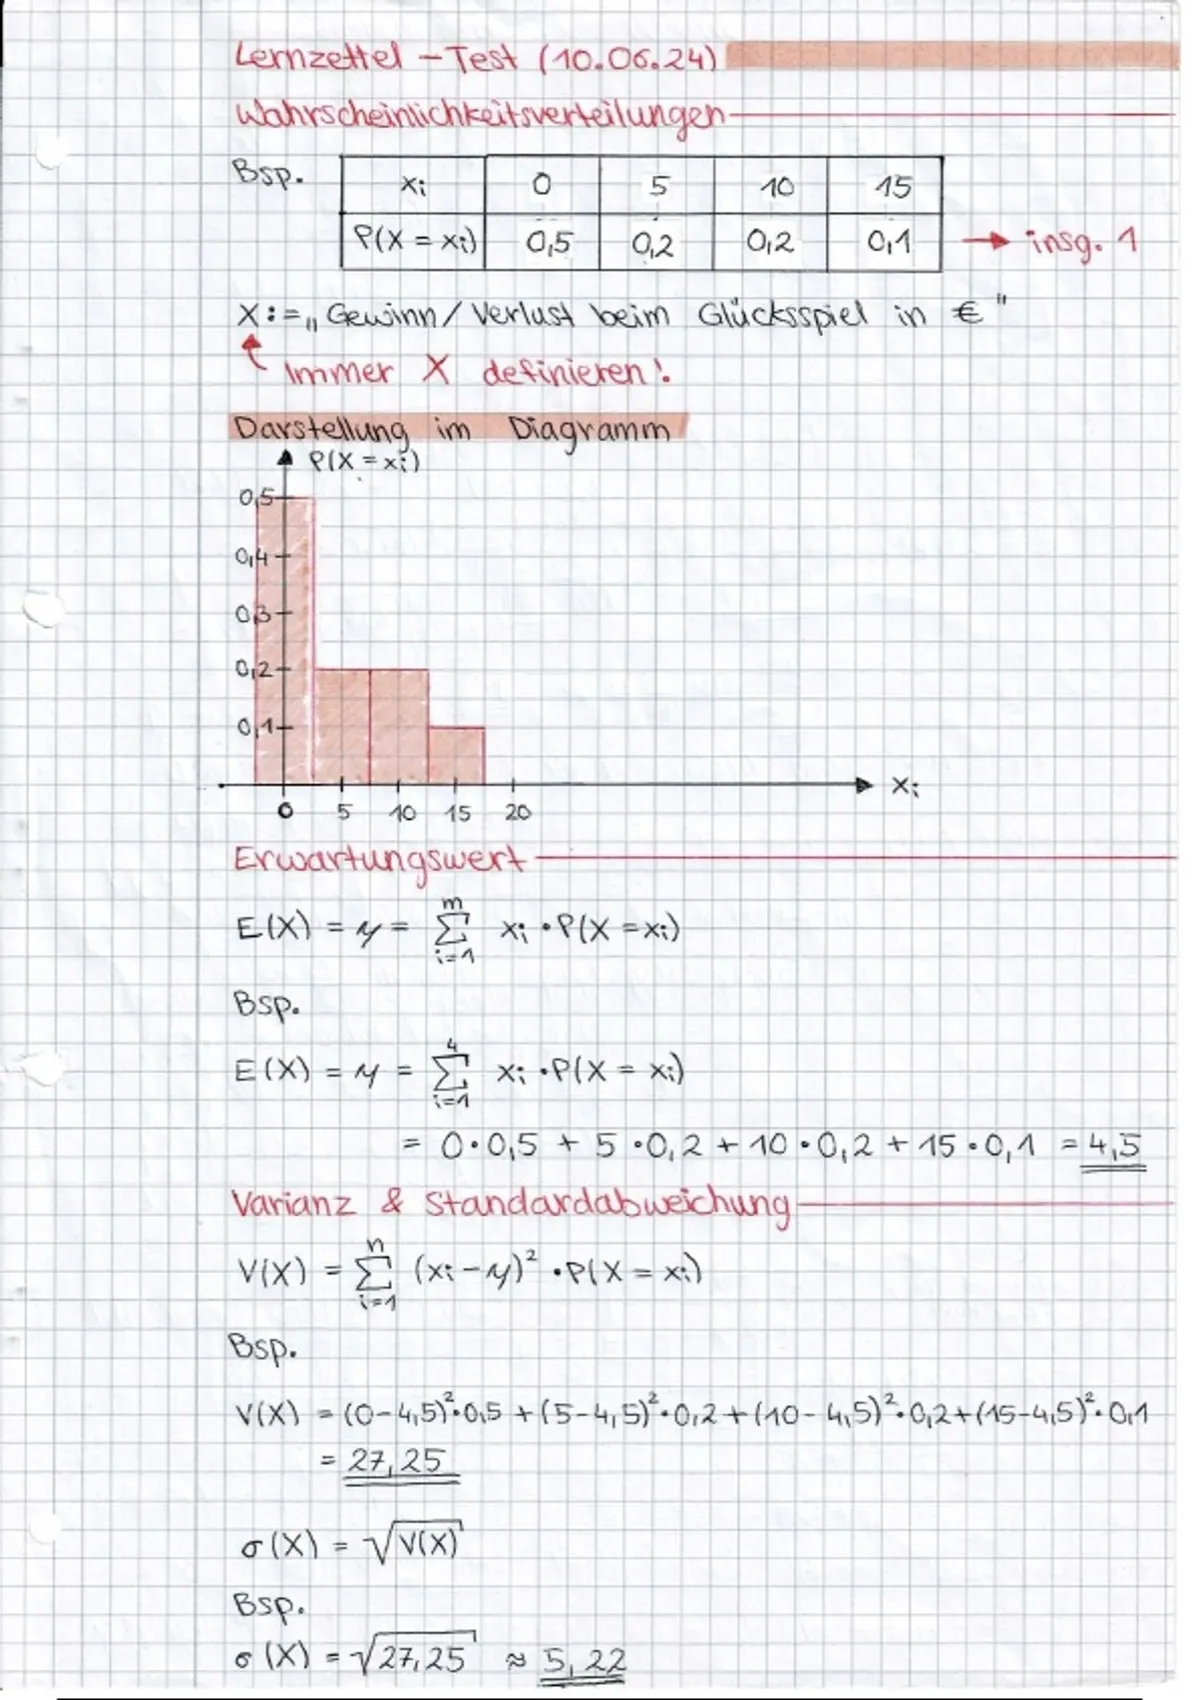 Lernzettel – Test (10.06.24)
Wahrscheinlichkeitsverteilungen
Bsp. xi 0 5 10 15
P(X = xi) 0,5 0,2 0,2 0,1 → insg. 1
X := „Gewinn/Verlust beim Glücksspiel in €"
Immer X definieren!
Darstellung im Diagramm
P(X = xi)
0,5
0,4
0,3
0,2
0,1
xi
0 5 10 15 20
Erwartungswert
E(X) = μ = m ∑ i=1 xi · P(X = xi)
Bsp.
E(X) = μ = 4 ∑ i=1 xi · P(X = xi)
= 0 · 0,5 + 5 · 0,2 + 10 · 0,2 + 15 · 0,1 = 4,5
Varianz & Standardabweichung
V(X) = n ∑ i=1 (xi – μ)² · P(X = xi)
Bsp.
V(X) = (0 – 4,5)² · 0,5 + (5 – 4,5)² · 0,2 + (10 – 4,5)² · 0,2 + (15 – 4,5)² · 0,1
= 27,25
σ(X) = √V(X)
Bsp.
σ(X) = √27,25 ≈ 5,22